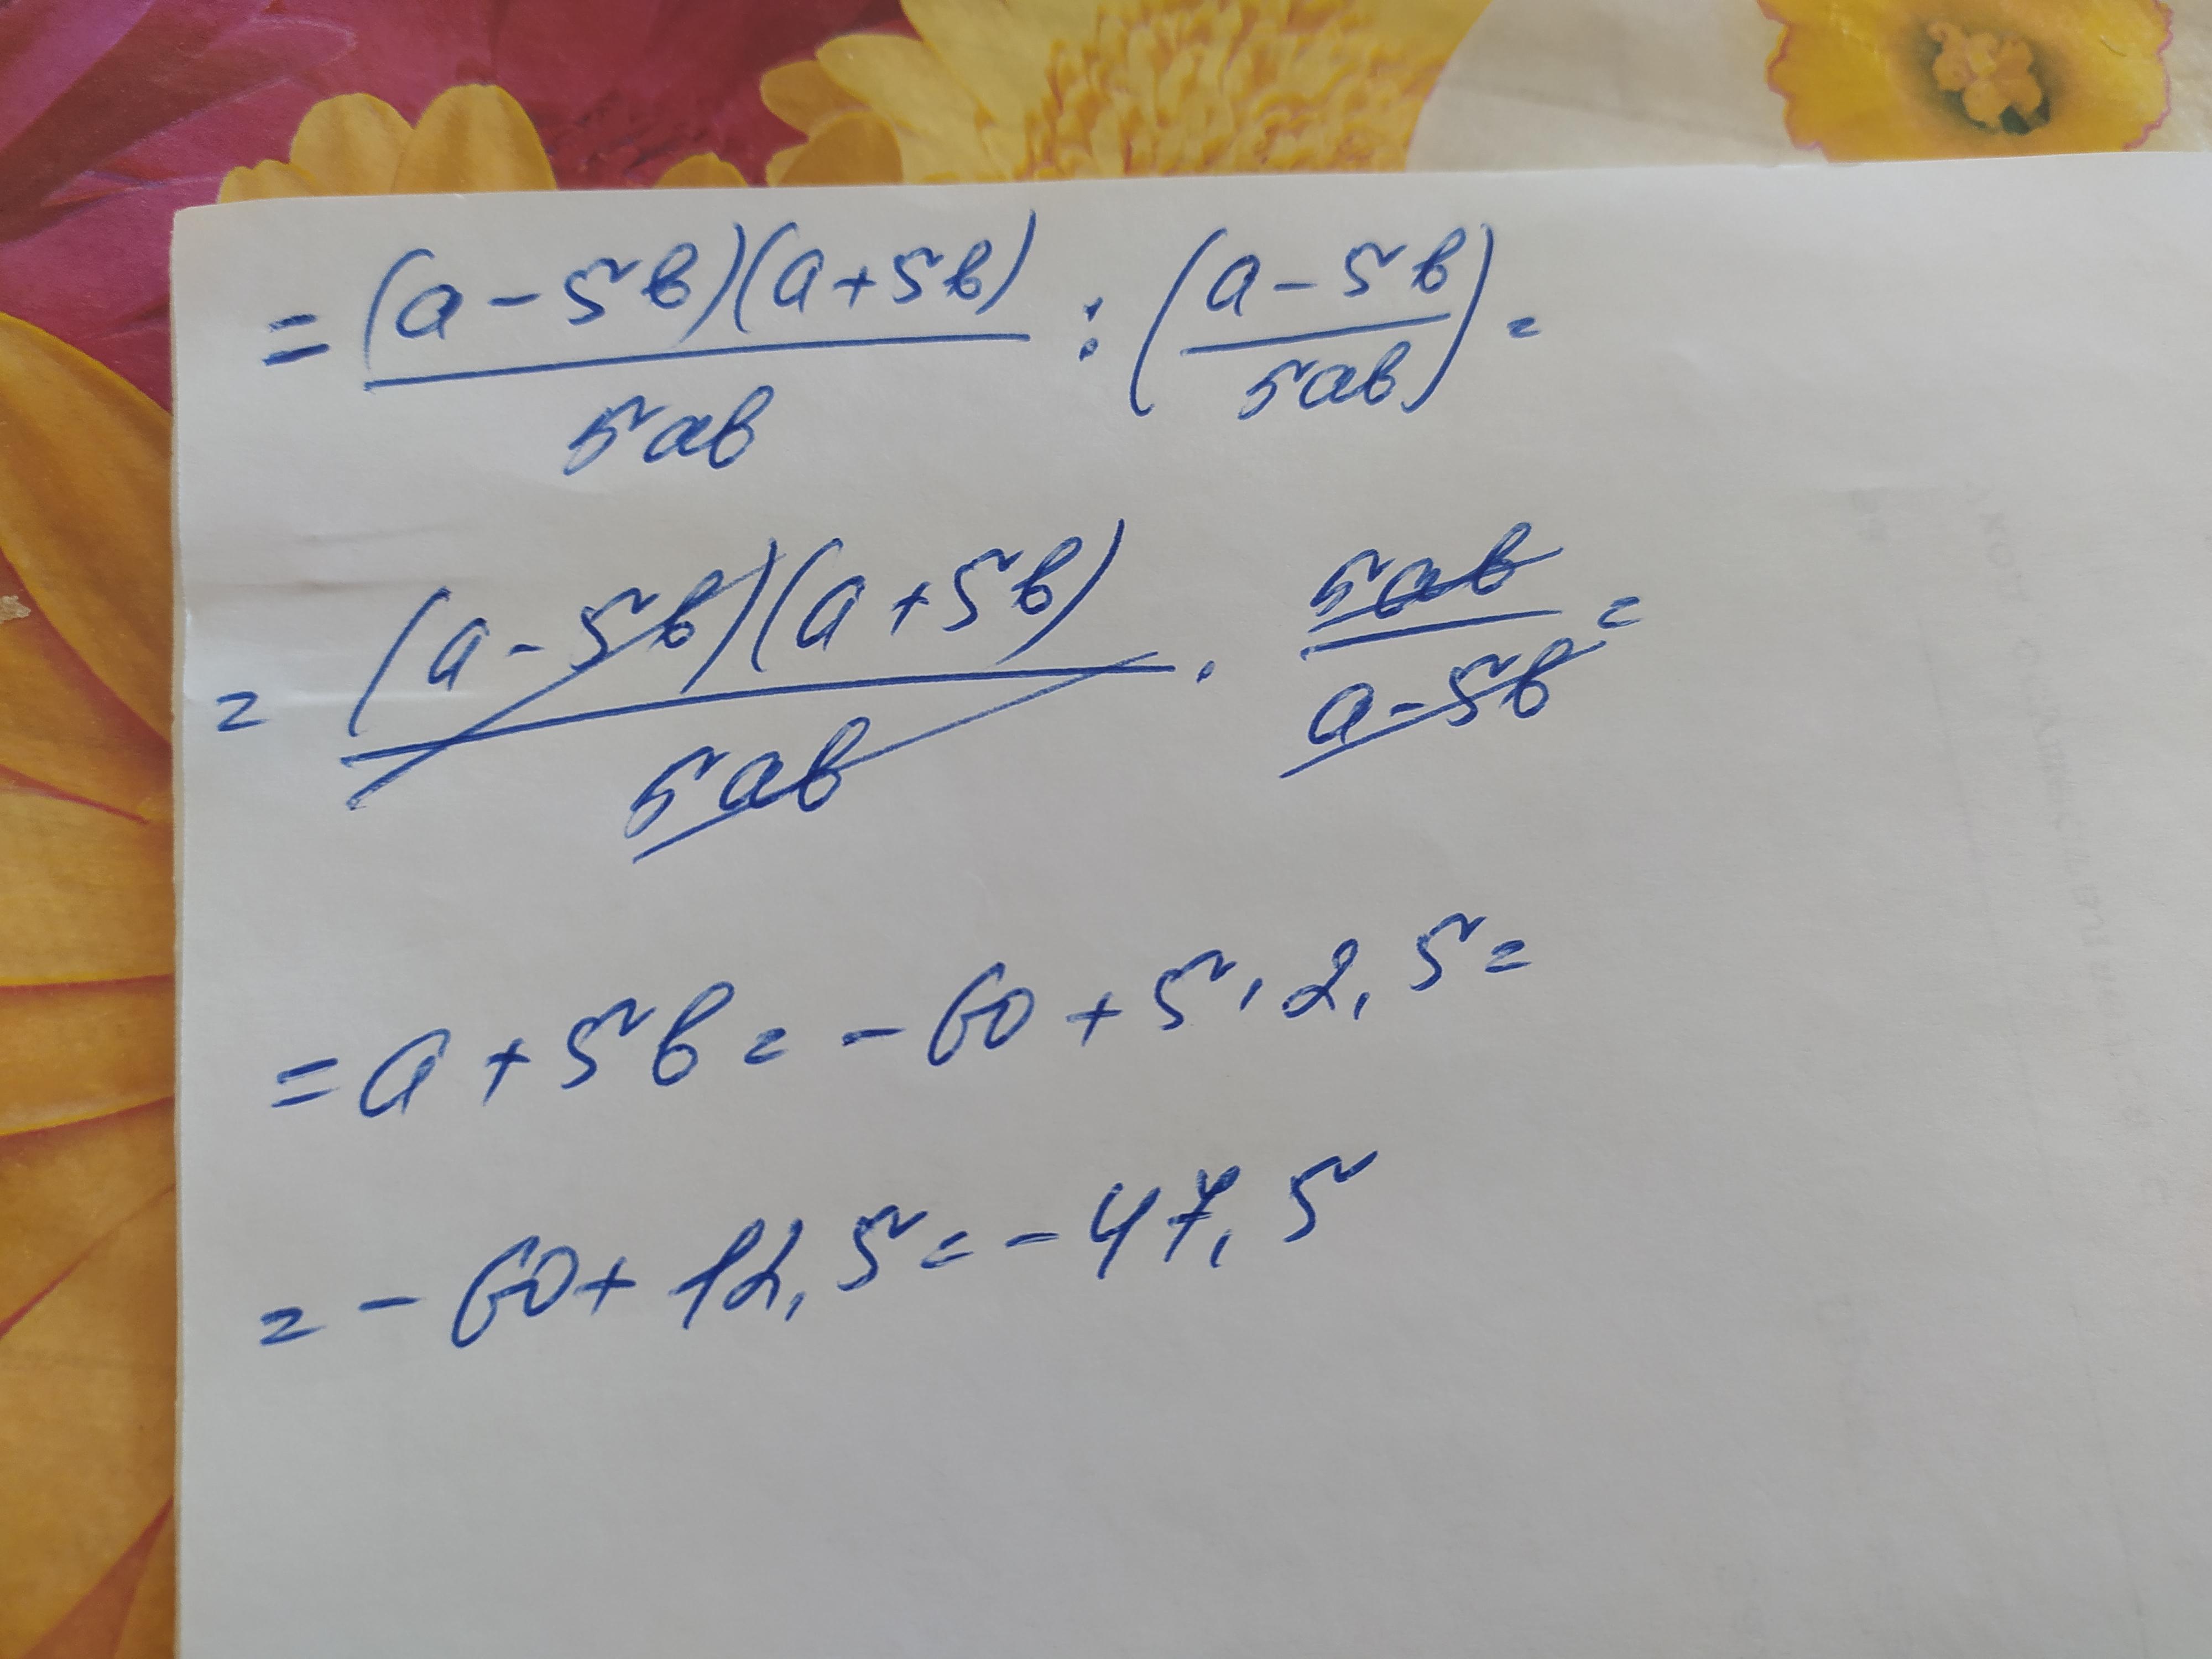 = (a - 5b)(a + 5b) / 5ab : (a - 5b / 5ab) =
= (a - 5b)(a + 5b) / 5ab · 5ab / a - 5b =
= a + 5b = - 60 + 5 · 2,5 =
= - 60 + 12,5 = - 47,5